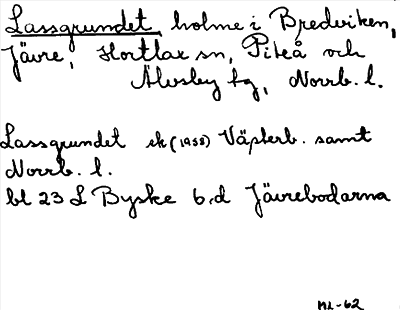 Lassgrundet, holme i Brederviken,
Jävre, Hortlax sn, Piteå och
Älvsby tg, Norrb. l.
Lassgrundet ek (1958) Västerb. samt
Norrb. l.
bl 23 L Byske 6, d Jävrebodarna
ML-62